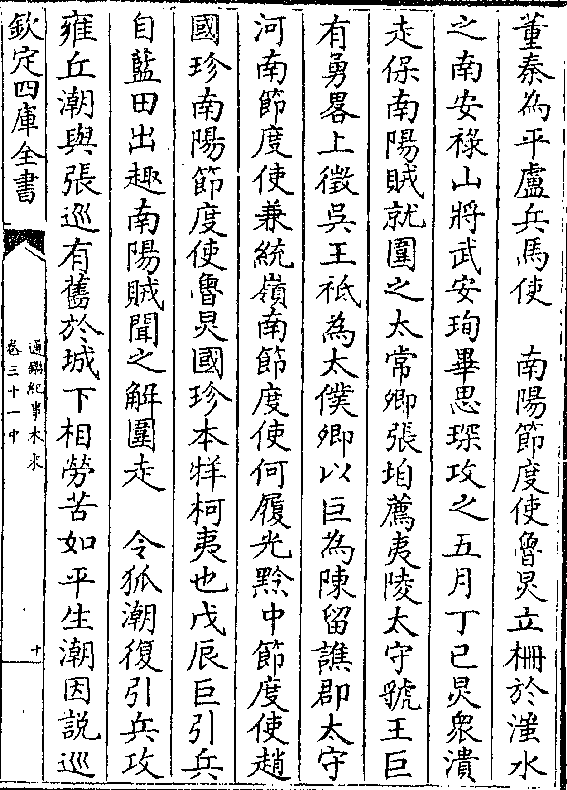 董秦為平盧兵馬使　南陽節度使魯炅立柵於滍水
之南安祿山將武安珣畢思琛攻之五月丁巳炅衆潰
走保南陽賊就圍之太常卿張垍薦夷陵太守虢王巨
有勇畧上徵吳王祗為太僕卿以巨為陳留譙郡太守
河南節度使兼統嶺南節度使何履光黔中節度使趙
國珍南陽節度使魯炅國珍本牂柯夷也戊辰巨引兵
自藍田出趣南陽賊聞之解圍走　令狐潮復引兵攻
雍丘潮與張巡有舊於城下相勞苦如平生潮因説巡
欽定四庫全書
通鑑紀事本末
卷三十一中
十